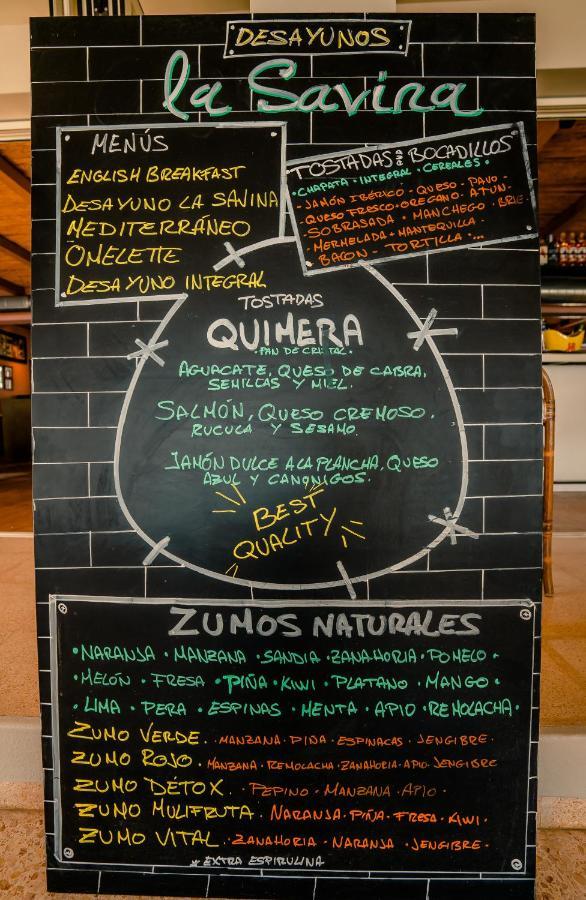 DESAYUNOS
la Savina
MENÚS
ENGLISH BREAKFAST
DESAYUNO LA SAVINA
MEDITERRÁNEO
OMELETTE
DESAYUNO INTEGRAL
TOSTADAS BOCADILLOS
• CHAPATA • INTEGRAL • CEREALES •
- JAMÓN IBÉRICO - QUESO - PAVO -
QUESO FRESCO - OREGANO - ATUN -
- SOBRASADA - MANCHEGO - BRIE -
- MERMELADA - MANTEQUILLA -
BACON - TORTILLA -...
TOSTADAS
QUIMERA
• PAN DE CRISTAL •
AGUACATE, QUESO DE CABRA,
SEMILLAS Y MIEL.
SALMÓN, QUESO CREMOSO,
RUCULA Y SESAMO.
JAMÓN DULCE A LA PLANCHA, QUESO
AZUL Y CANONIGOS.
BEST
QUALITY
ZUMOS NATURALES
• NARANJA • MANZANA • SANDIA • ZANAHORIA • POMELO •
• MELÓN • FRESA • PIÑA • KIWI • PLATANO • MANGO •
• LIMA • PERA • ESPINAS • MENTA • APIO • REMOLACHA •
ZUMO VERDE. • MANZANA • PIÑA • ESPINACAS • JENGIBRE •
ZUMO ROJO • MANZANA • REMOLACHA • ZANAHORIA • APIO • JENGIBRE
ZUMO DÉTOX • PEPINO • MANZANA • APIO •
ZUMO MULIFRUTA • NARANJA • PIÑA • FRESA • KIWI •
ZUMO VITAL • ZANAHORIA • NARANJA • JENGIBRE •
* EXTRA ESPIRULINA